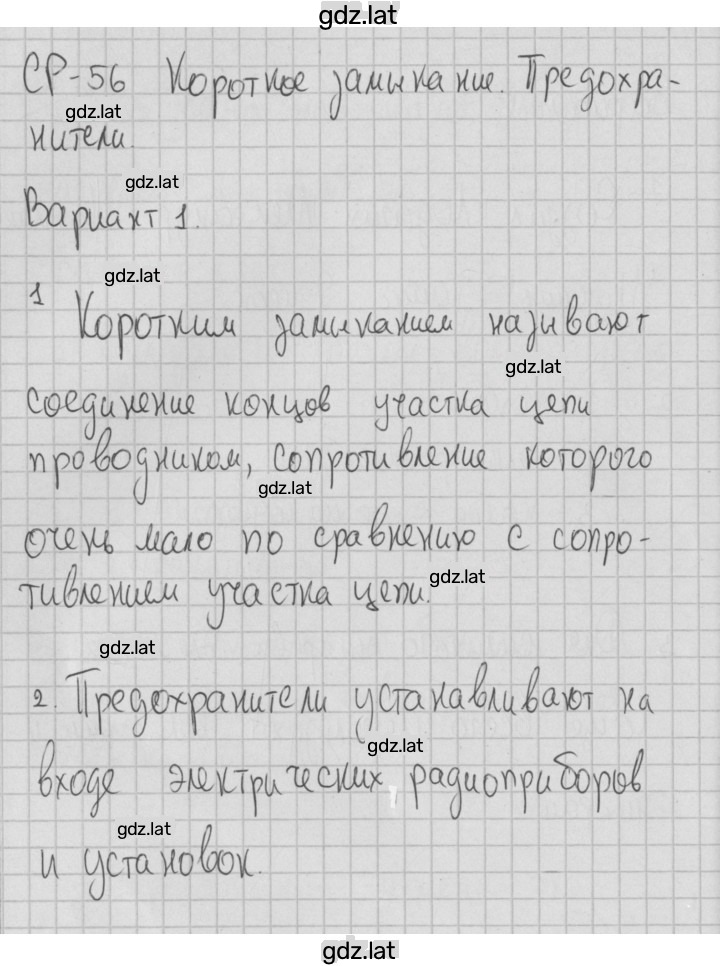 gdz.lat
СР-56 Короткое замыкание. Предохра-
gdz.lat
нители.
gdz.lat
Вариант 1.
gdz.lat
1 Коротким замыканием називают
gdz.lat
соединение концов участка цепи
проводником, сопротивление которого
gdz.lat
очень мало по сравнению с сопро-
gdz.lat
тивлением участка цепи.
gdz.lat
2. Предохранители устанавливают на
gdz.lat
входе электрических радиоприборов
gdz.lat
и установок.
gdz.lat